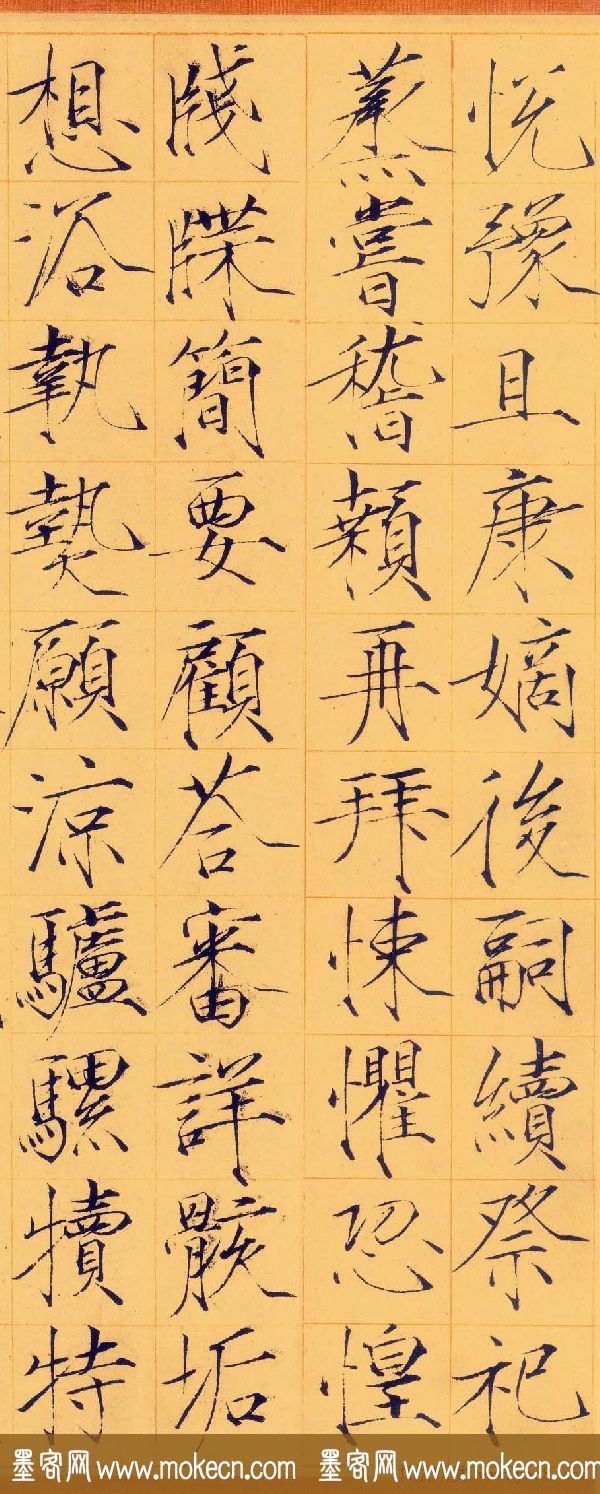 悦豫且康嫡後嗣續祭祀
蒸嘗稽顙再拜悚懼恐惶
牋牒簡要顧荅審詳骸垢
想浴執熱願涼驢騾犢特
墨客网 www.mokecn.com 墨客网 www.mokecn.com